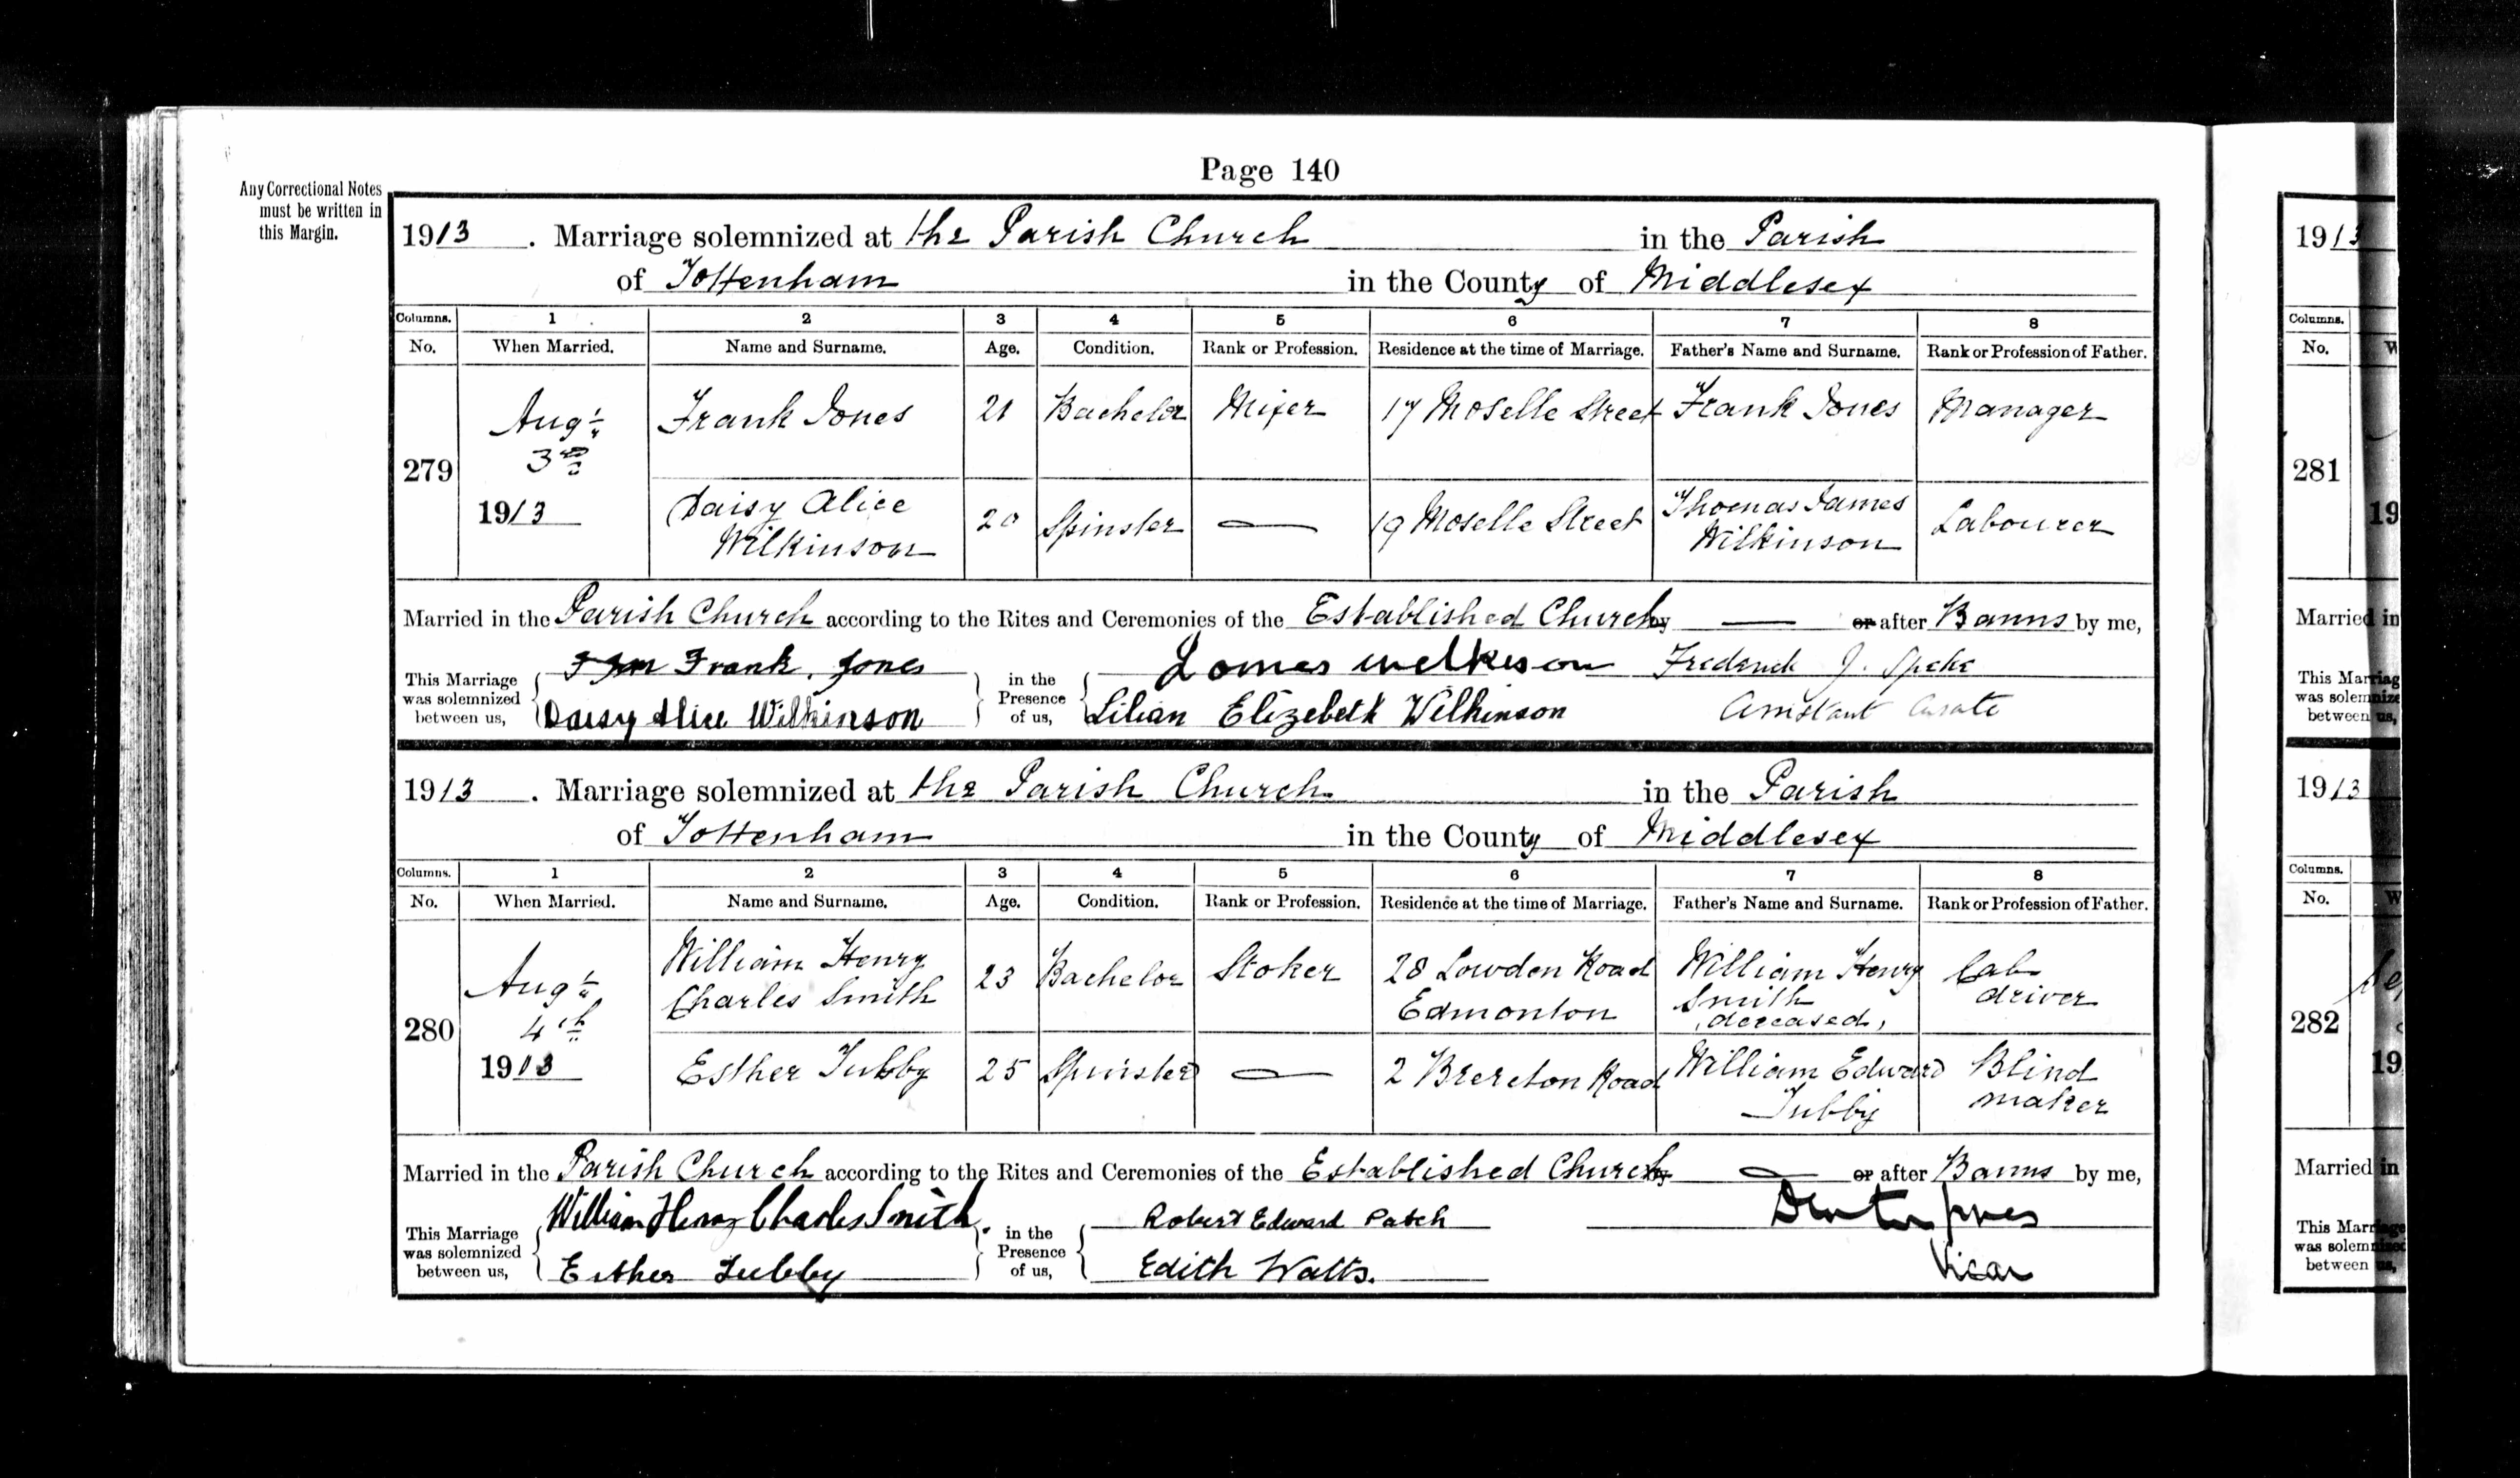 Page 140
Any Correctional Notes
must be written in
this Margin.
1913. Marriage solemnized at the Parish Church in the Parish
of Tottenham in the County of Middlesex
Columns. 1 2 3 4 5 6 7 8
No. When Married. Name and Surname. Age. Condition. Rank or Profession. Residence at the time of Marriage. Father's Name and Surname. Rank or Profession of Father.
279
Aug:
3rd
1913
Frank Jones 21 Bachelor Mixer 17 Moselle Street Frank Jones Manager
Daisy Alice
Wilkinson
20 Spinster — 19 Moselle Street
Thomas James
Wilkinson
Labourer
Married in the Parish Church according to the Rites and Ceremonies of the Established Church by — or after Banns by me,
This Marriage
was solemnized
between us,
Frank Jones
Daisy Alice Wilkinson
in the
Presence
of us,
Lilian Elizebeth Wilkinson
Frederick J. Speke
Assistant Curate
1913. Marriage solemnized at the Parish Church in the Parish
of Tottenham in the County of Middlesex
Columns. 1 2 3 4 5 6 7 8
No. When Married. Name and Surname. Age. Condition. Rank or Profession. Residence at the time of Marriage. Father's Name and Surname. Rank or Profession of Father.
280
Aug:
4th
1913
William Henry
Charles Smith
23 Bachelor Stoker
28 Lowden Road
Edmonton
William Henry
Smith
(deceased)
Cab
driver
Esther Tubby 25 Spinster — 2 Brereton Road
William Edward
Tubby
Blind
maker
Married in the Parish Church according to the Rites and Ceremonies of the Established Church by — or after Banns by me,
This Marriage
was solemnized
between us,
William Henry Charles Smith.
Esther Tubby
in the
Presence
of us,
Robert Edward Patch
Edith Watts.
Denton Jones
Vicar
1913
Columns.
No.
281
19
Married in
This Marriage
was solemnized
between us,
1913
Columns.
No.
282
19
Married in
This Marriage
was solemnized
between us,